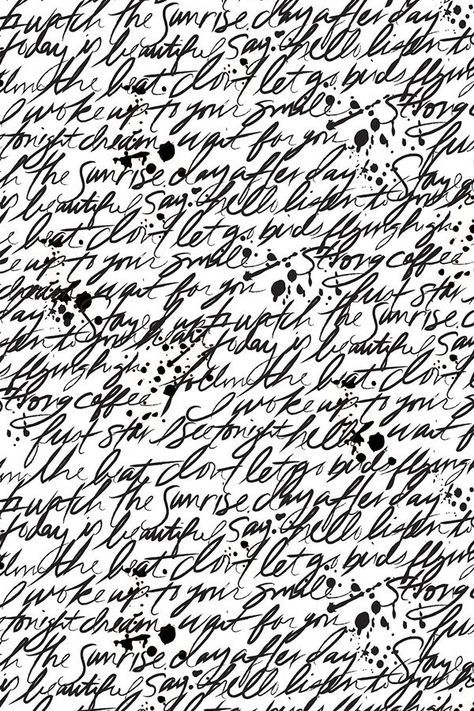 watch the Sunrise day after day
today is beautiful Say: hello listen to
the beat. don't let go birds flying
I woke up to your smile Strong
tonight dream wait for you
the Sunrise day after day Stayed
is beautiful Say: hello listen to
the beat. don't let go birds flying high
up to your smile Strong coffee
wait for you first star
day Stayed up to watch the Sunrise
to your today is beautiful Say
flying high the beat. don't
Strong coffee I woke up to your
first star I see tonight wait
the beat don't let go birds flying
watch the Sunrise day after day
today is beautiful Say: hello listen to
the beat. don't let go birds flying
I woke up to your smile Strong
tonight dream wait for you
the Sunrise day after day Stayed
is beautiful Say: hello listen to